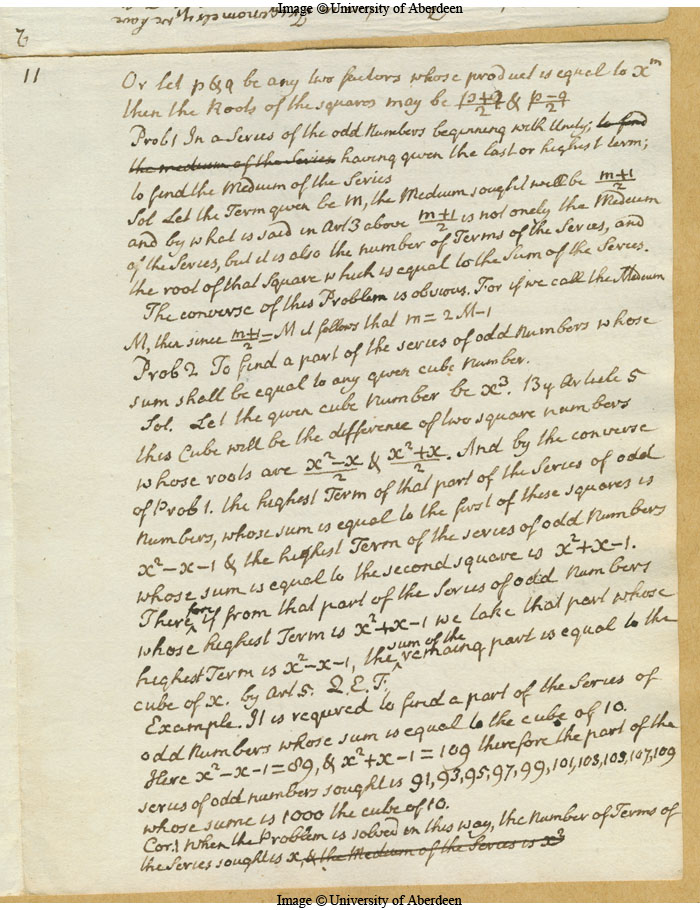 Image © University of Aberdeen
11
Or let p & q be any two factors whose product is equal to x^m
then the Roots of the squares may be (p+q)/2 & (p-q)/2
Prob 1 In a Series of the odd Numbers beginning with Unity, to find
the medium of the Series having given the last or highest term;
to find the Medium of the Series
Sol Let the Term given be m, the Medium sought will be (m+1)/2
and by what is said in Art 3 above (m+1)/2 is not onely the Medium
of the Series, but it is also the number of Terms of the Series, and
the root of that Square which is equal to the Sum of the Series.
The converse of this Problem is obvious. For if we call the Medium
M, then since (m+1)/2 = M it follows that m = 2M-1
Prob 2 To find a part of the series of odd Numbers whose
sum shall be equal to any given cube Number.
Sol. Let the given cube Number be x³. By Article 5
this Cube will be the difference of two square numbers
whose roots are (x²-x)/2 & (x²+x)/2. And by the converse
of Prob 1. the highest Term of that part of the Series of odd
Numbers, whose sum is equal to the first of these squares is
x²-x-1 & the highest Term of the series of odd Numbers
whose sum is equal to the second square is x²+x-1.
Therefore if from that part of the Series of odd Numbers
whose highest Term is x²+x-1 we take that part whose
highest Term is x²-x-1, the sum of the remaing part is equal to the
cube of x. by Art 5. Q.E.F.
Example. It is requred to find a part of the Series of
odd Numbers whose sum is equal to the cube of 10.
Here x²-x-1=89, & x²+x-1=109 therefore the part of the
series of odd numbers sought is 91,93,95,97,99,101,103,105,107,109
whose sume is 1000 the cube of 10.
Cor. 1 When the Problem is solved in this way, the Number of Terms of
the Series sought is x, & the Medium of the Series is x²
Image © University of Aberdeen